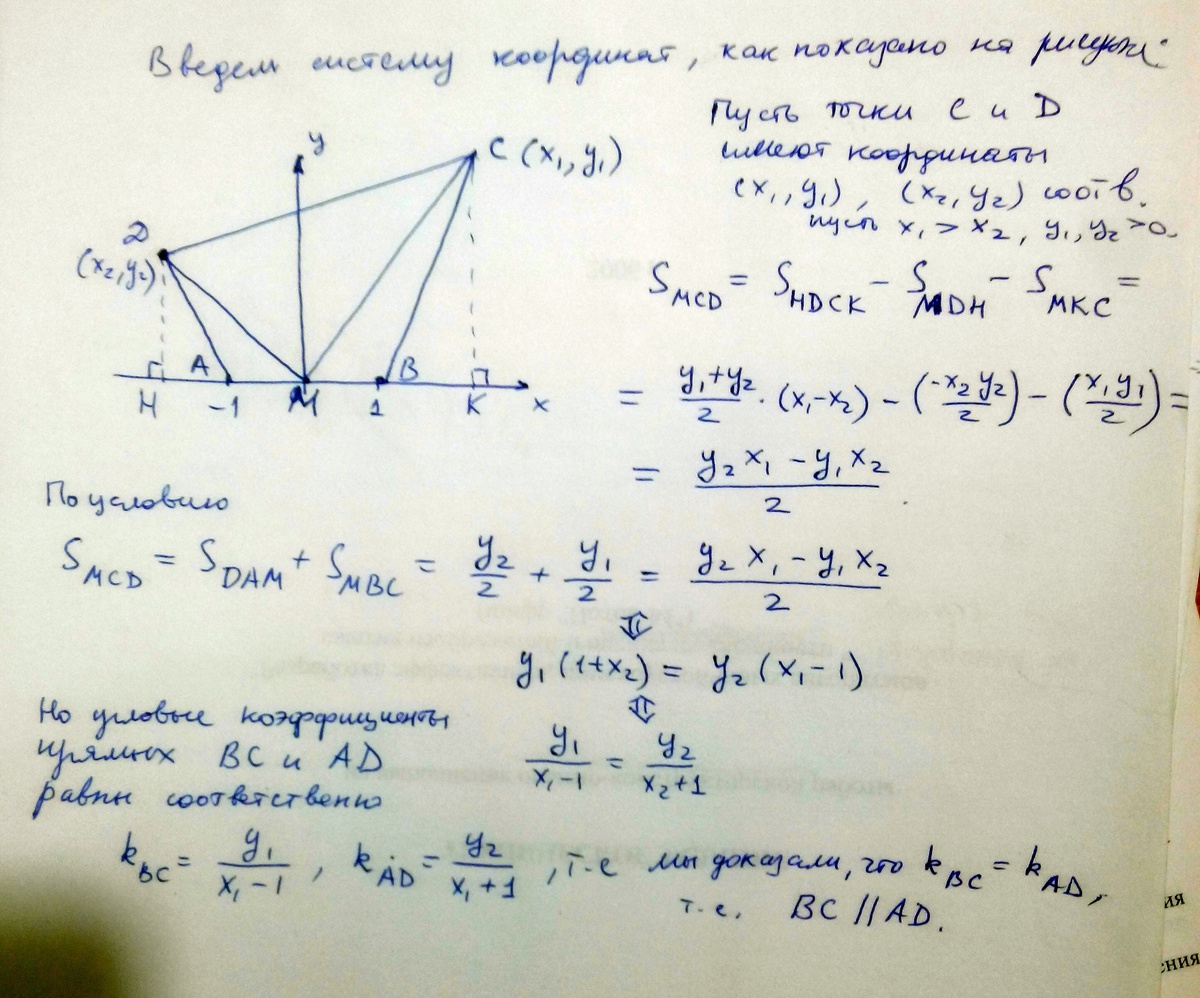 Введем систему координат, как показано на рисунке:
Пусть точки C и D
имеют координаты
(x₁, y₁), (x₂, y₂) соотв.
пусть x₁ > x₂, y₁, y₂ > 0.
y
C (x₁, y₁)
D
(x₂, y₂)
A
B
H
-1
M
1
K
x
S_MCD = S_HDCK - S_MDH - S_MKC =
= (y₁+y₂)/2 · (x₁-x₂) - (-x₂y₂/2) - (x₁y₁/2) =
= (y₂x₁ - y₁x₂)/2
По условию
S_MCD = S_DAM + S_MBC = y₂/2 + y₁/2 = (y₂x₁ - y₁x₂)/2
⇕
y₁(1+x₂) = y₂(x₁-1)
⇕
y₁/(x₁-1) = y₂/(x₂+1)
Но угловые коэффициенты
прямых BC и AD
равны соответственно
k_BC = y₁/(x₁-1), k_AD = y₂/(x₁+1), т.е мы доказали, что k_BC = k_AD,
т.е. BC // AD.
ия
ения